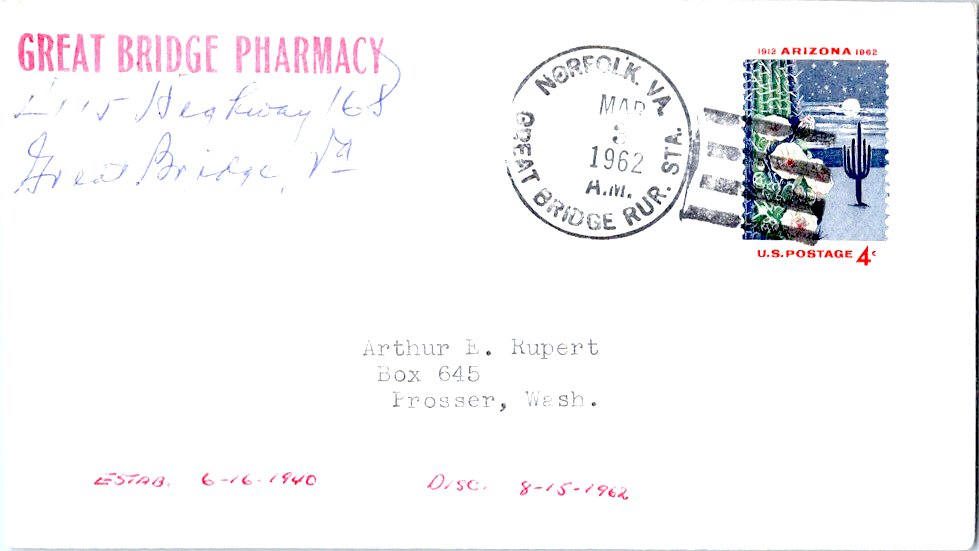 GREAT BRIDGE PHARMACY
Highway 168
Great Bridge, Va
NORFOLK, VA.
MAR
3
1962
A.M.
GREAT BRIDGE RUR. STA.
1912 ARIZONA 1962
U.S. POSTAGE 4c
Arthur E. Rupert
Box 645
Prosser, Wash.
ESTAB. 6-16-1940 DISC. 8-15-1962